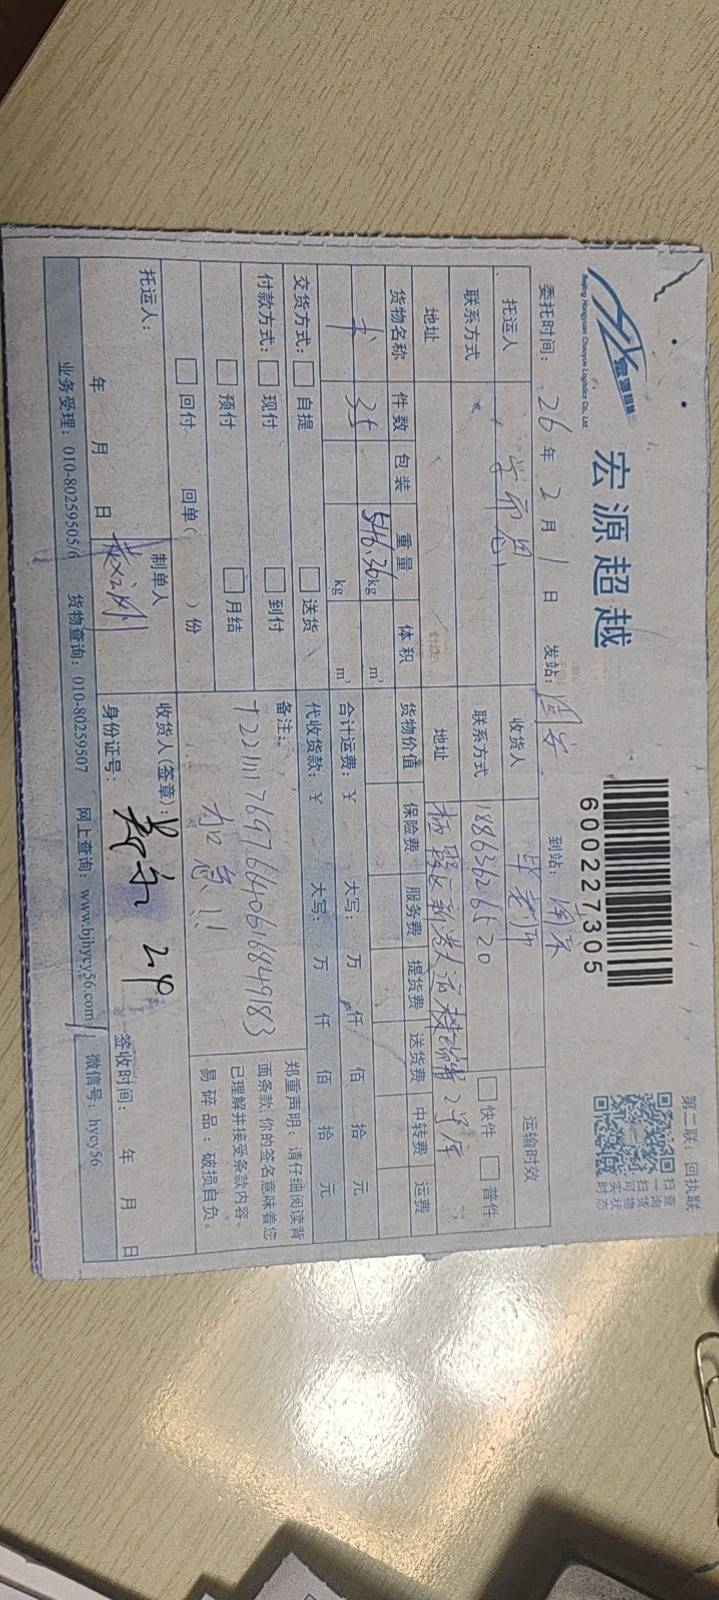 第二联：回执联
宏源超越
Beijing Hongyuan Chaoyue Logistics Co., Ltd.
600227305
扫一扫可实时
查询货物状态
委托时间：26年2月1日 发站：固安 到站：
托运人 收货人 毕老师 运输时效
联系方式 联系方式 18863626520 快件 普件
地址 地址 2号库
货物名称 件数 包装 重量 体积 货物价值 保险费 服务费 提货费 送货费 中转费 运费
书 35 546.36kg m³
kg m³
合计运费：¥ 大写： 万 仟 佰 拾 元
交货方式： 自提 送货
代收货款：¥ 大写： 万 仟 佰 拾 元
付款方式： 现付 到付
预付 月结
回付 回单（ ）份
备注：
加急!!
郑重声明：请仔细阅读背
面条款，你的签名意味着您
已理解并接受条款内容。
易碎品：破损自负。
托运人： 制单人 收货人(签章)：
年 月 日 身份证号： 签收时间： 年 月 日
业务受理：010-80259505/6 货物查询：010-80259507 网上查询：www.bjhycy56.com 微信号：hycy56